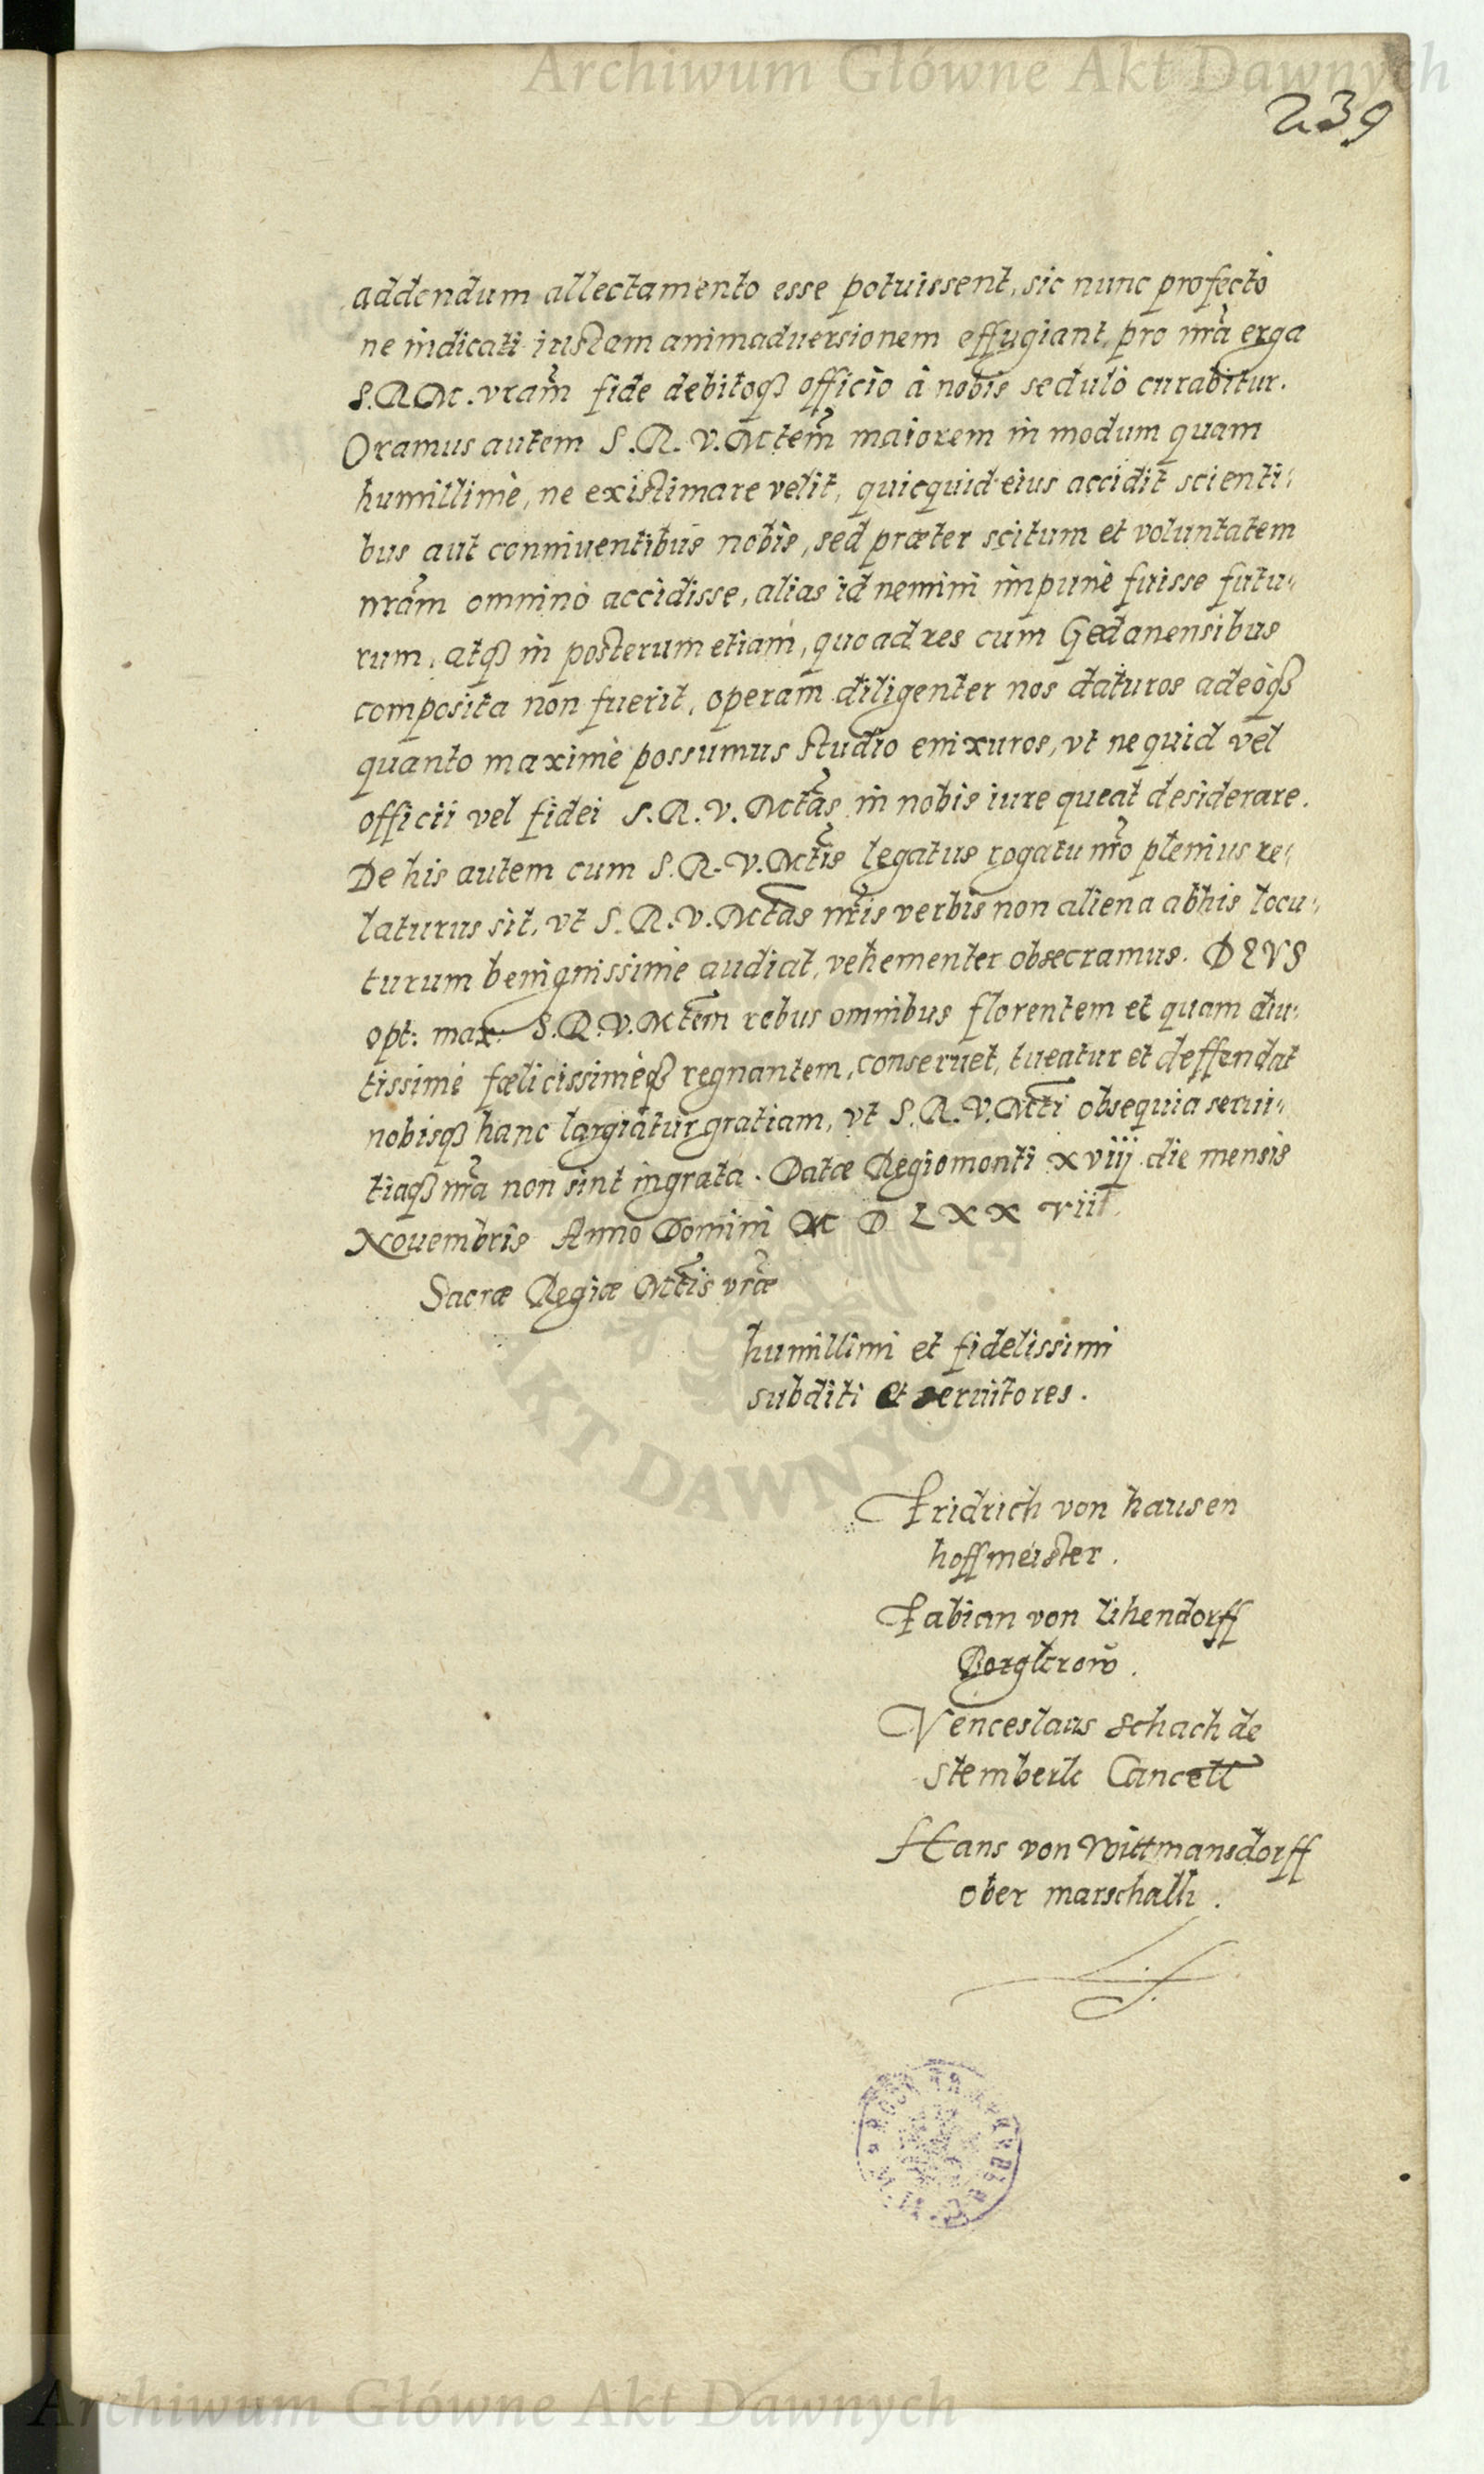 Archiwum Główne Akt Dawnych
239
addendum allectamento esse potuissent, sic nunc profectò
ne indicati iustam animaduersionem effugiant, pro nr̃a erga
S.R.M. vram̃ fide debitoqȝ officio à nobis sedulò curabitur.
Oramus autem S.R.V.Mtem̃ maiorem in modum quam
humillimè, ne existimare velit, quicquid eius accidit scienti:
bus aut conniuentibus nobis, sed præter scitum et voluntatem
nram̃ omninò accidisse, alias id nemini impunè fuisse futu:
rum, atqȝ in posterum etiam, quoad res cum Gedanensibus
composita non fuerit, operam diligenter nos daturos adeòqȝ
quanto maximè possumus studio enixuros, vt ne quid vel
officii vel fidei S.R.V.Mtas̃ in nobis iure queat desiderare.
De his autem cum S.R.V.Mtis̃ legatus rogatu nr̃o plenius re:
laturus sit, vt S.R.V.Mtas̃ nr̃is verbis non aliena ab his locu:
turum benignissimè audiat, vehementer obsecramus. DEVS
opt: max: S.R.V.Mtem̃ rebus omnibus florentem et quam diu:
tissimè fœlicissimèqȝ regnantem, conseruet, tueatur et deffendat
nobisqȝ hanc largiatur gratiam, vt S.R.V.Mti̇̃ obsequia serui:
tiaqȝ nr̃a non sint ingrata. Datæ Regiomonti xviij die mensis
Nouembris Anno Domini M D L X X viii
Sacræ Regiæ Mtis̃ vr̃æ
humillimi et fidelissimi
subditi et seruitores.
Fridrich von hausen
hoffmeister.
Fabian von Lihendorff
Borggrow̃.
Venceslaus Schach de
Stemberk Cancell
Hans von Wittmansdorff
ober marschalh.
AKT DAWNYCH
Archiwum Główne Akt Dawnych